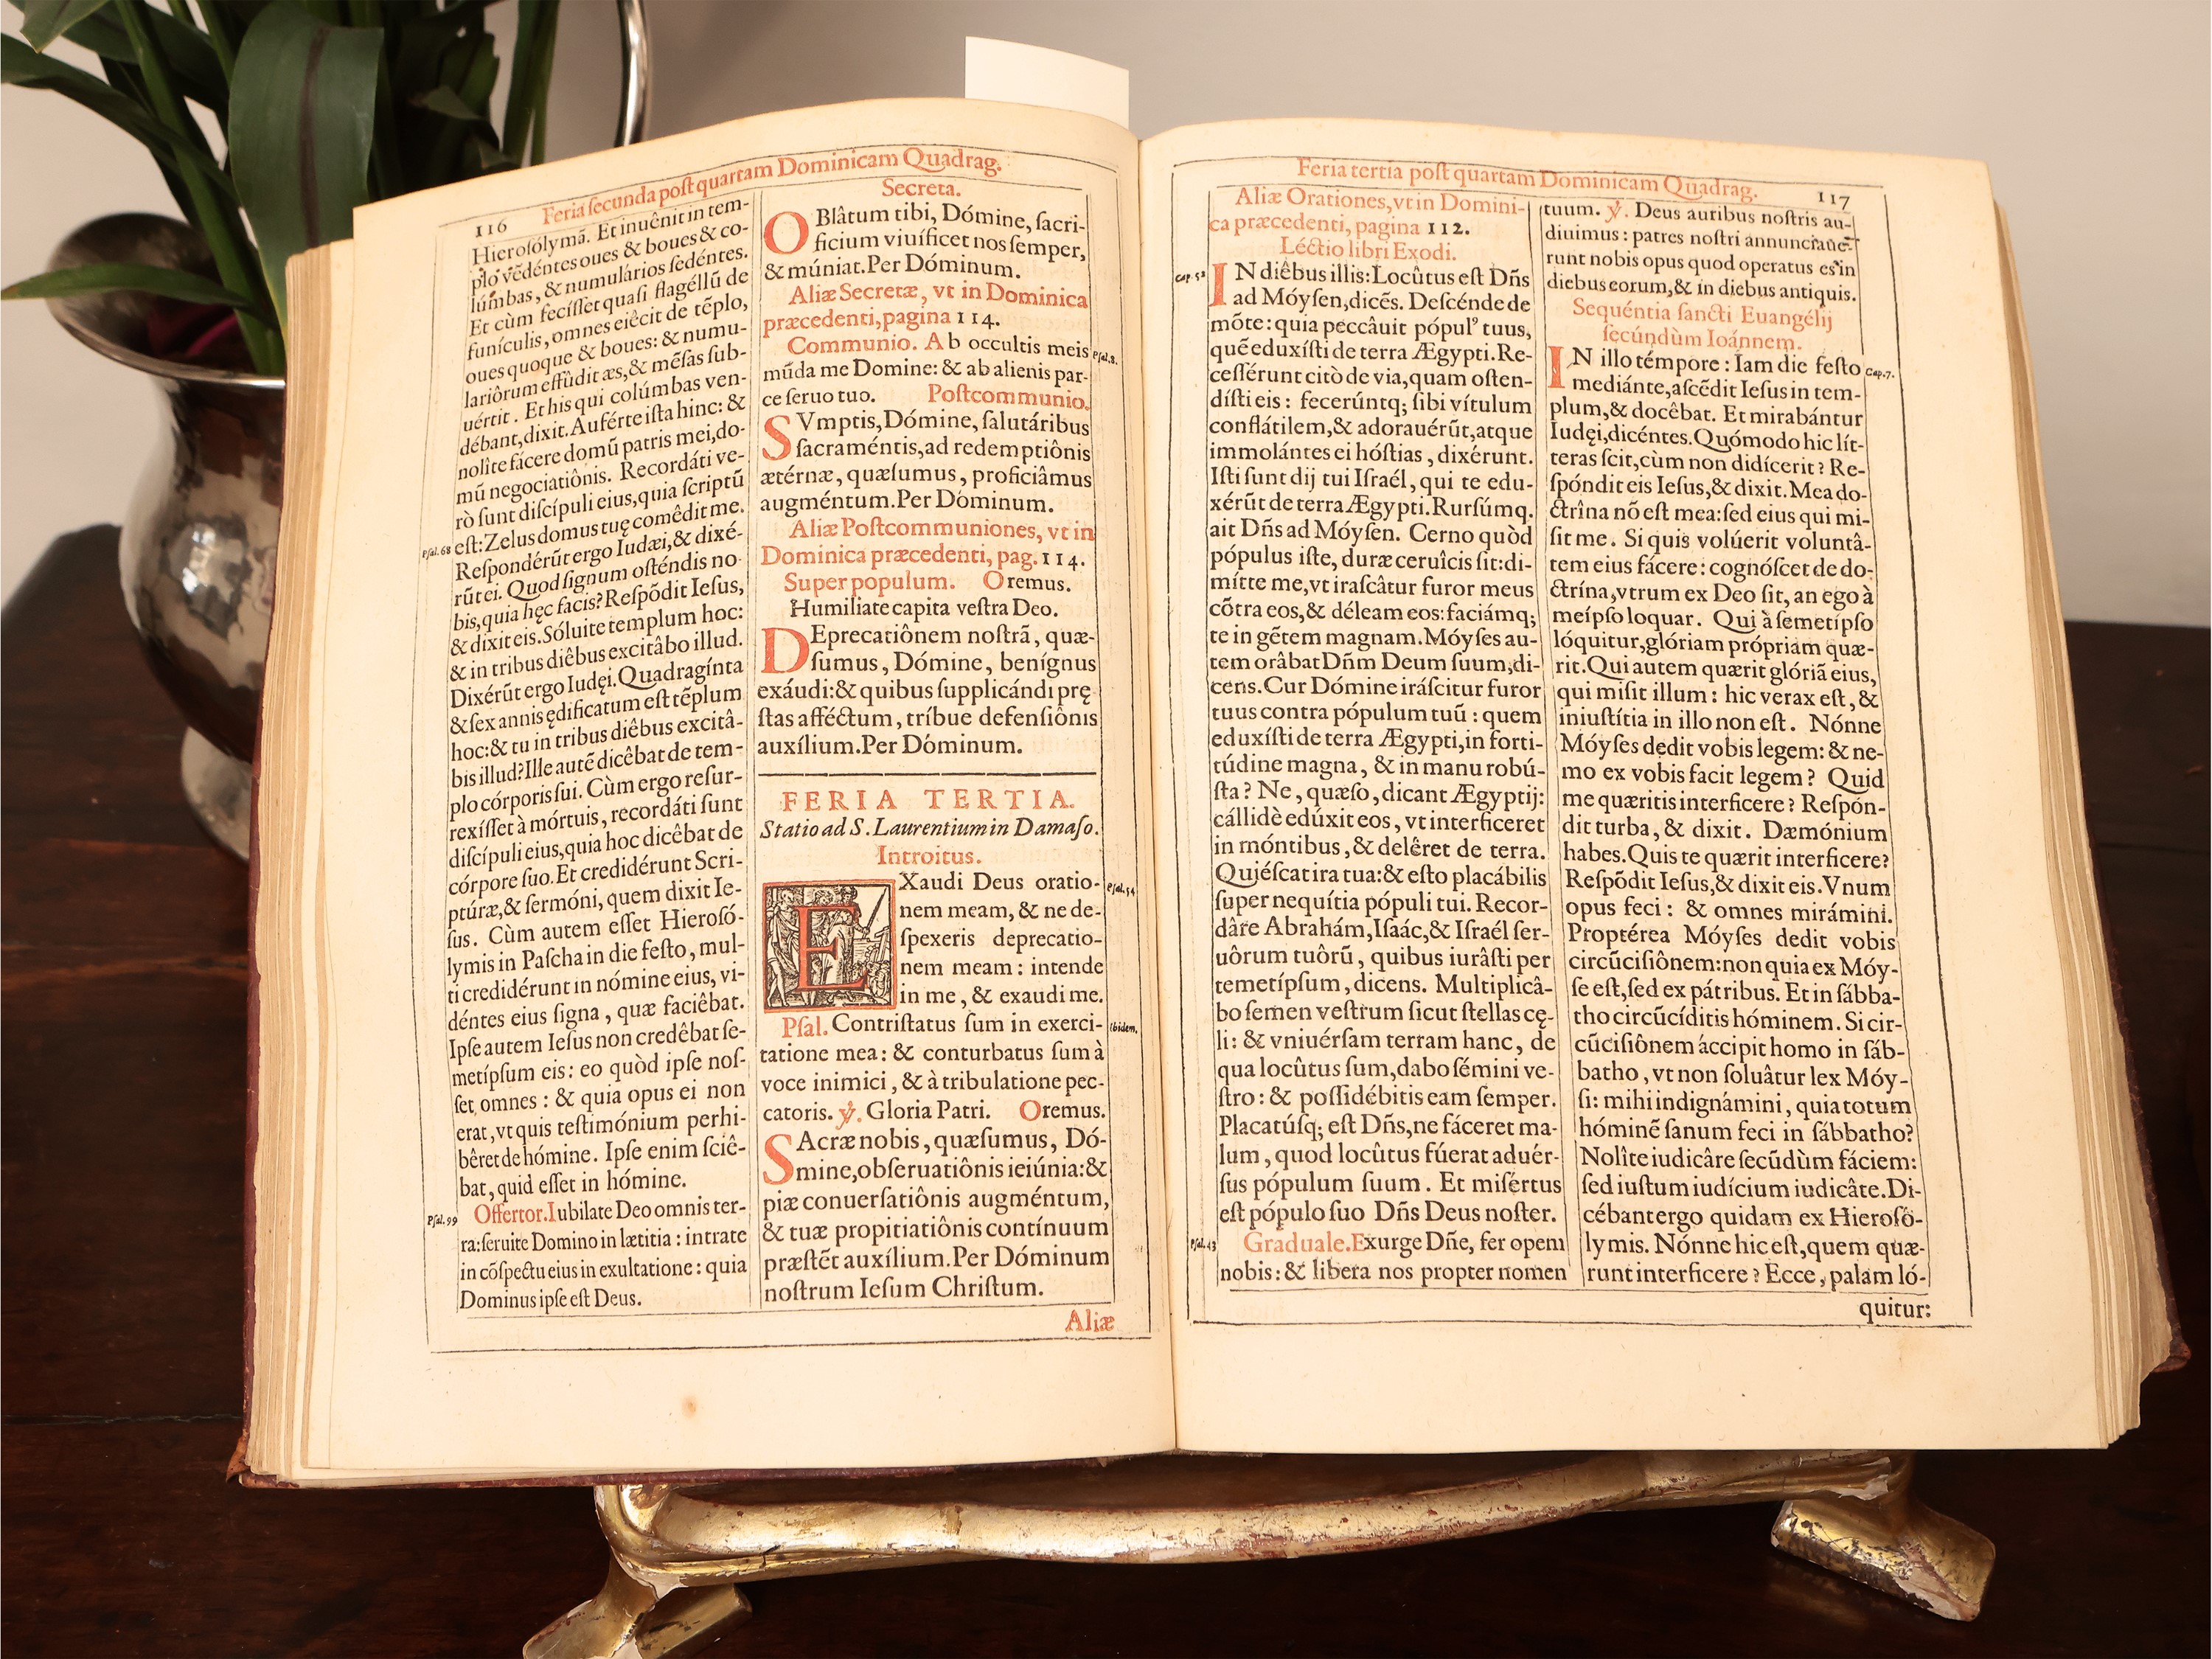 116
Feria ſecunda poſt quartam Dominicam Quadrag.
Hieroſólymã. Et inuênit in tem-
plo vẽdéntes oues & boues & co-
lúmbas, & numulários ſedéntes.
Et cùm feciſſet quaſi flagéllũ de
funículis, omnes eiêcit de tẽplo,
oues quoque & boues: & numu-
lariôrum effûdit æs, & mẽſas ſub-
uértit. Et his qui colúmbas ven-
débant, dixit. Auférte iſta hinc: &
nolîte fácere domũ patris mei, do-
mũ negociatiônis. Recordáti ve-
rò ſunt diſcípuli eius, quia ſcriptũ
Pſal. 68
eſt: Zelus domus tuę comêdit me.
Reſpondérũt ergo Iudæi, & dixé-
rũt ei. Quod ſignum oſténdis no-
bis, quia hęc facis? Reſpõdit Ieſus,
& dixit eis. Sóluite templum hoc:
& in tribus diêbus excitâbo illud.
Dixérũt ergo Iudęi. Quadragínta
& ſex annis ędificatum eſt tẽplum
hoc: & tu in tribus diêbus excitâ-
bis illud? Ille autẽ dicêbat de tem-
plo córporis ſui. Cùm ergo reſur-
rexíſſet à mórtuis, recordáti ſunt
diſcípuli eius, quia hoc dicêbat de
córpore ſuo. Et credidérunt Scri-
ptúræ, & ſermóni, quem dixit Ie-
ſus. Cùm autem eſſet Hieroſó-
lymis in Paſcha in die feſto, mul-
ti credidérunt in nómine eius, vi-
déntes eius ſigna, quæ faciêbat.
Ipſe autem Ieſus non credêbat ſe-
metípſum eis: eo quòd ipſe noſ-
ſet omnes: & quia opus ei non
erat, vt quis teſtimónium perhi-
bêret de hómine. Ipſe enim ſciê-
bat, quid eſſet in hómine.
Pſal. 99
Offertor. Iubilate Deo omnis ter-
ra: ſeruite Domino in lætitia: intrate
in cõſpectu eius in exultatione: quia
Dominus ipſe eſt Deus.
Secreta.
OBlâtum tibi, Dómine, ſacri-
ficium viuíficet nos ſemper,
& múniat. Per Dóminum.
Aliæ Secretæ, vt in Dominica
præcedenti, pagina 114.
Communio. Ab occultis meis
Pſal. 8.
mũda me Domine: & ab alienis par-
ce ſeruo tuo. Poſtcommunio.
SVmptis, Dómine, ſalutáribus
ſacraméntis, ad redemptiônis
ætérnæ, quæſumus, proficiâmus
augméntum. Per Dóminum.
Aliæ Poſtcommuniones, vt in
Dominica præcedenti, pag. 114.
Super populum. Oremus.
Humiliate capita veſtra Deo.
DEprecatiônem noſtrã, quæ-
ſumus, Dómine, benígnus
exáudi: & quibus ſupplicándi prę
ſtas afféctum, tríbue defenſiônis
auxílium. Per Dóminum.
FERIA TERTIA.
Statio ad S. Laurentium in Damaſo.
Introitus.
EXaudi Deus oratio-
Pſal. 54
nem meam, & ne de-
ſpexeris deprecatio-
nem meam: intende
in me, & exaudi me.
Pſal. Contriſtatus ſum in exerci-
Ibidem.
tatione mea: & conturbatus ſum à
voce inimici, & à tribulatione pec-
catoris. ℣. Gloria Patri. Oremus.
SAcræ nobis, quæſumus, Dó-
mine, obſeruatiônis ieiúnia: &
piæ conuerſatiônis augméntum,
& tuæ propitiatiônis contínuum
præſtẽt auxílium. Per Dóminum
noſtrum Ieſum Chriſtum.
Aliæ
Feria tertia poſt quartam Dominicam Quadrag.
117
Aliæ Orationes, vt in Domini-
ca præcedenti, pagina 112.
Léctio libri Exodi.
Cap. 32
IN diêbus illis: Locûtus eſt Dñs
ad Móyſen, dicẽs. Deſcénde de
mõte: quia peccâuit pópulꝰ tuus,
quẽ eduxíſti de terra Ægypti. Re-
ceſſérunt citò de via, quam oſten-
díſti eis: fecerúntq; ſibi vítulum
conflátilem, & adorauérũt, atque
immolántes ei hóſtias, dixérunt.
Iſti ſunt dij tui Iſraél, qui te edu-
xérũt de terra Ægypti. Rurſúmq.
ait Dñs ad Móyſen. Cerno quòd
pópulus iſte, duræ ceruîcis ſit: di-
mítte me, vt iraſcâtur furor meus
cõtra eos, & déleam eos: faciámq;
te in gẽtem magnam. Móyſes au-
tem orâbat Dñm Deum ſuum, di-
cens. Cur Dómine iráſcitur furor
tuus contra pópulum tuũ: quem
eduxíſti de terra Ægypti, in forti-
túdine magna, & in manu robú-
ſta? Ne, quæſo, dicant Ægyptij:
cállidè edúxit eos, vt interficeret
in móntibus, & delêret de terra.
Quiéſcat ira tua: & eſto placábilis
ſuper nequítia pópuli tui. Recor-
dâre Abrahám, Iſaác, & Iſraél ſer-
uôrum tuôrũ, quibus iurâſti per
temetípſum, dicens. Multiplicâ-
bo ſemen veſtrum ſicut ſtellas cę-
li: & vniuérſam terram hanc, de
qua locûtus ſum, dabo ſémini ve-
ſtro: & poſſidébitis eam ſemper.
Placatúſq; eſt Dñs, ne fáceret ma-
lum, quod locûtus fúerat aduér-
ſus pópulum ſuum. Et miſértus
eſt pópulo ſuo Dñs Deus noſter.
Pſal. 43
Graduale. Exurge Dñe, fer opem
nobis: & libera nos propter nomen
tuum. ℣. Deus auribus noſtris au-
diuimus: patres noſtri annunciaue-
runt nobis opus quod operatus es in
diebus eorum, & in diebus antiquis.
Sequéntia ſancti Euangélij
ſecúndùm Ioánnem.
IN illo témpore: Iam die feſto
Cap. 7.
mediánte, aſcẽdit Ieſus in tem-
plum, & docêbat. Et mirabántur
Iudęi, dicéntes. Quómodo hic lít-
teras ſcit, cùm non didícerit? Re-
ſpóndit eis Ieſus, & dixit. Mea do-
ctrîna nõ eſt mea: ſed eius qui mi-
ſit me. Si quis volúerit voluntâ-
tem eius fácere: cognóſcet de do-
ctrína, vtrum ex Deo ſit, an ego à
meípſo loquar. Qui à ſemetípſo
lóquitur, glóriam própriam quæ-
rit. Qui autem quærit glóriã eius,
qui miſit illum: hic verax eſt, &
iniuſtítia in illo non eſt. Nónne
Móyſes dedit vobis legem: & ne-
mo ex vobis facit legem? Quid
me quæritis interficere? Reſpón-
dit turba, & dixit. Dæmónium
habes. Quis te quærit interficere?
Reſpõdit Ieſus, & dixit eis. Vnum
opus feci: & omnes mirámini.
Proptérea Móyſes dedit vobis
circũciſiônem: non quia ex Móy-
ſe eſt, ſed ex pátribus. Et in ſábba-
tho circũcíditis hóminem. Si cir-
cũciſiônem áccipit homo in ſáb-
batho, vt non ſoluâtur lex Móy-
ſi: mihi indignámini, quia totum
hóminẽ ſanum feci in ſábbatho?
Nolîte iudicâre ſecũdùm fáciem:
ſed iuſtum iudícium iudicâte. Di-
cébant ergo quidam ex Hieroſó-
lymis. Nónne hic eſt, quem quæ-
runt interficere? Ecce, palam ló-
quitur: